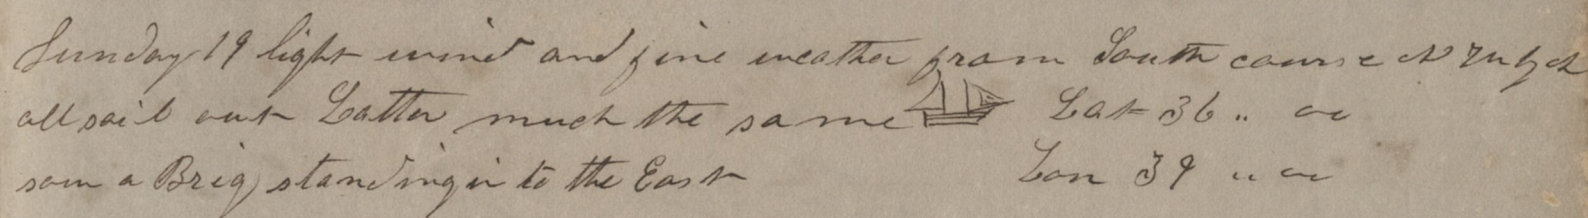 Sunday 19 light wind and fine weather from South course N W by N
all sail out Latter much the same Lat 36 .. 00
saw a Brig standing in to the East Lon 39 .. 00